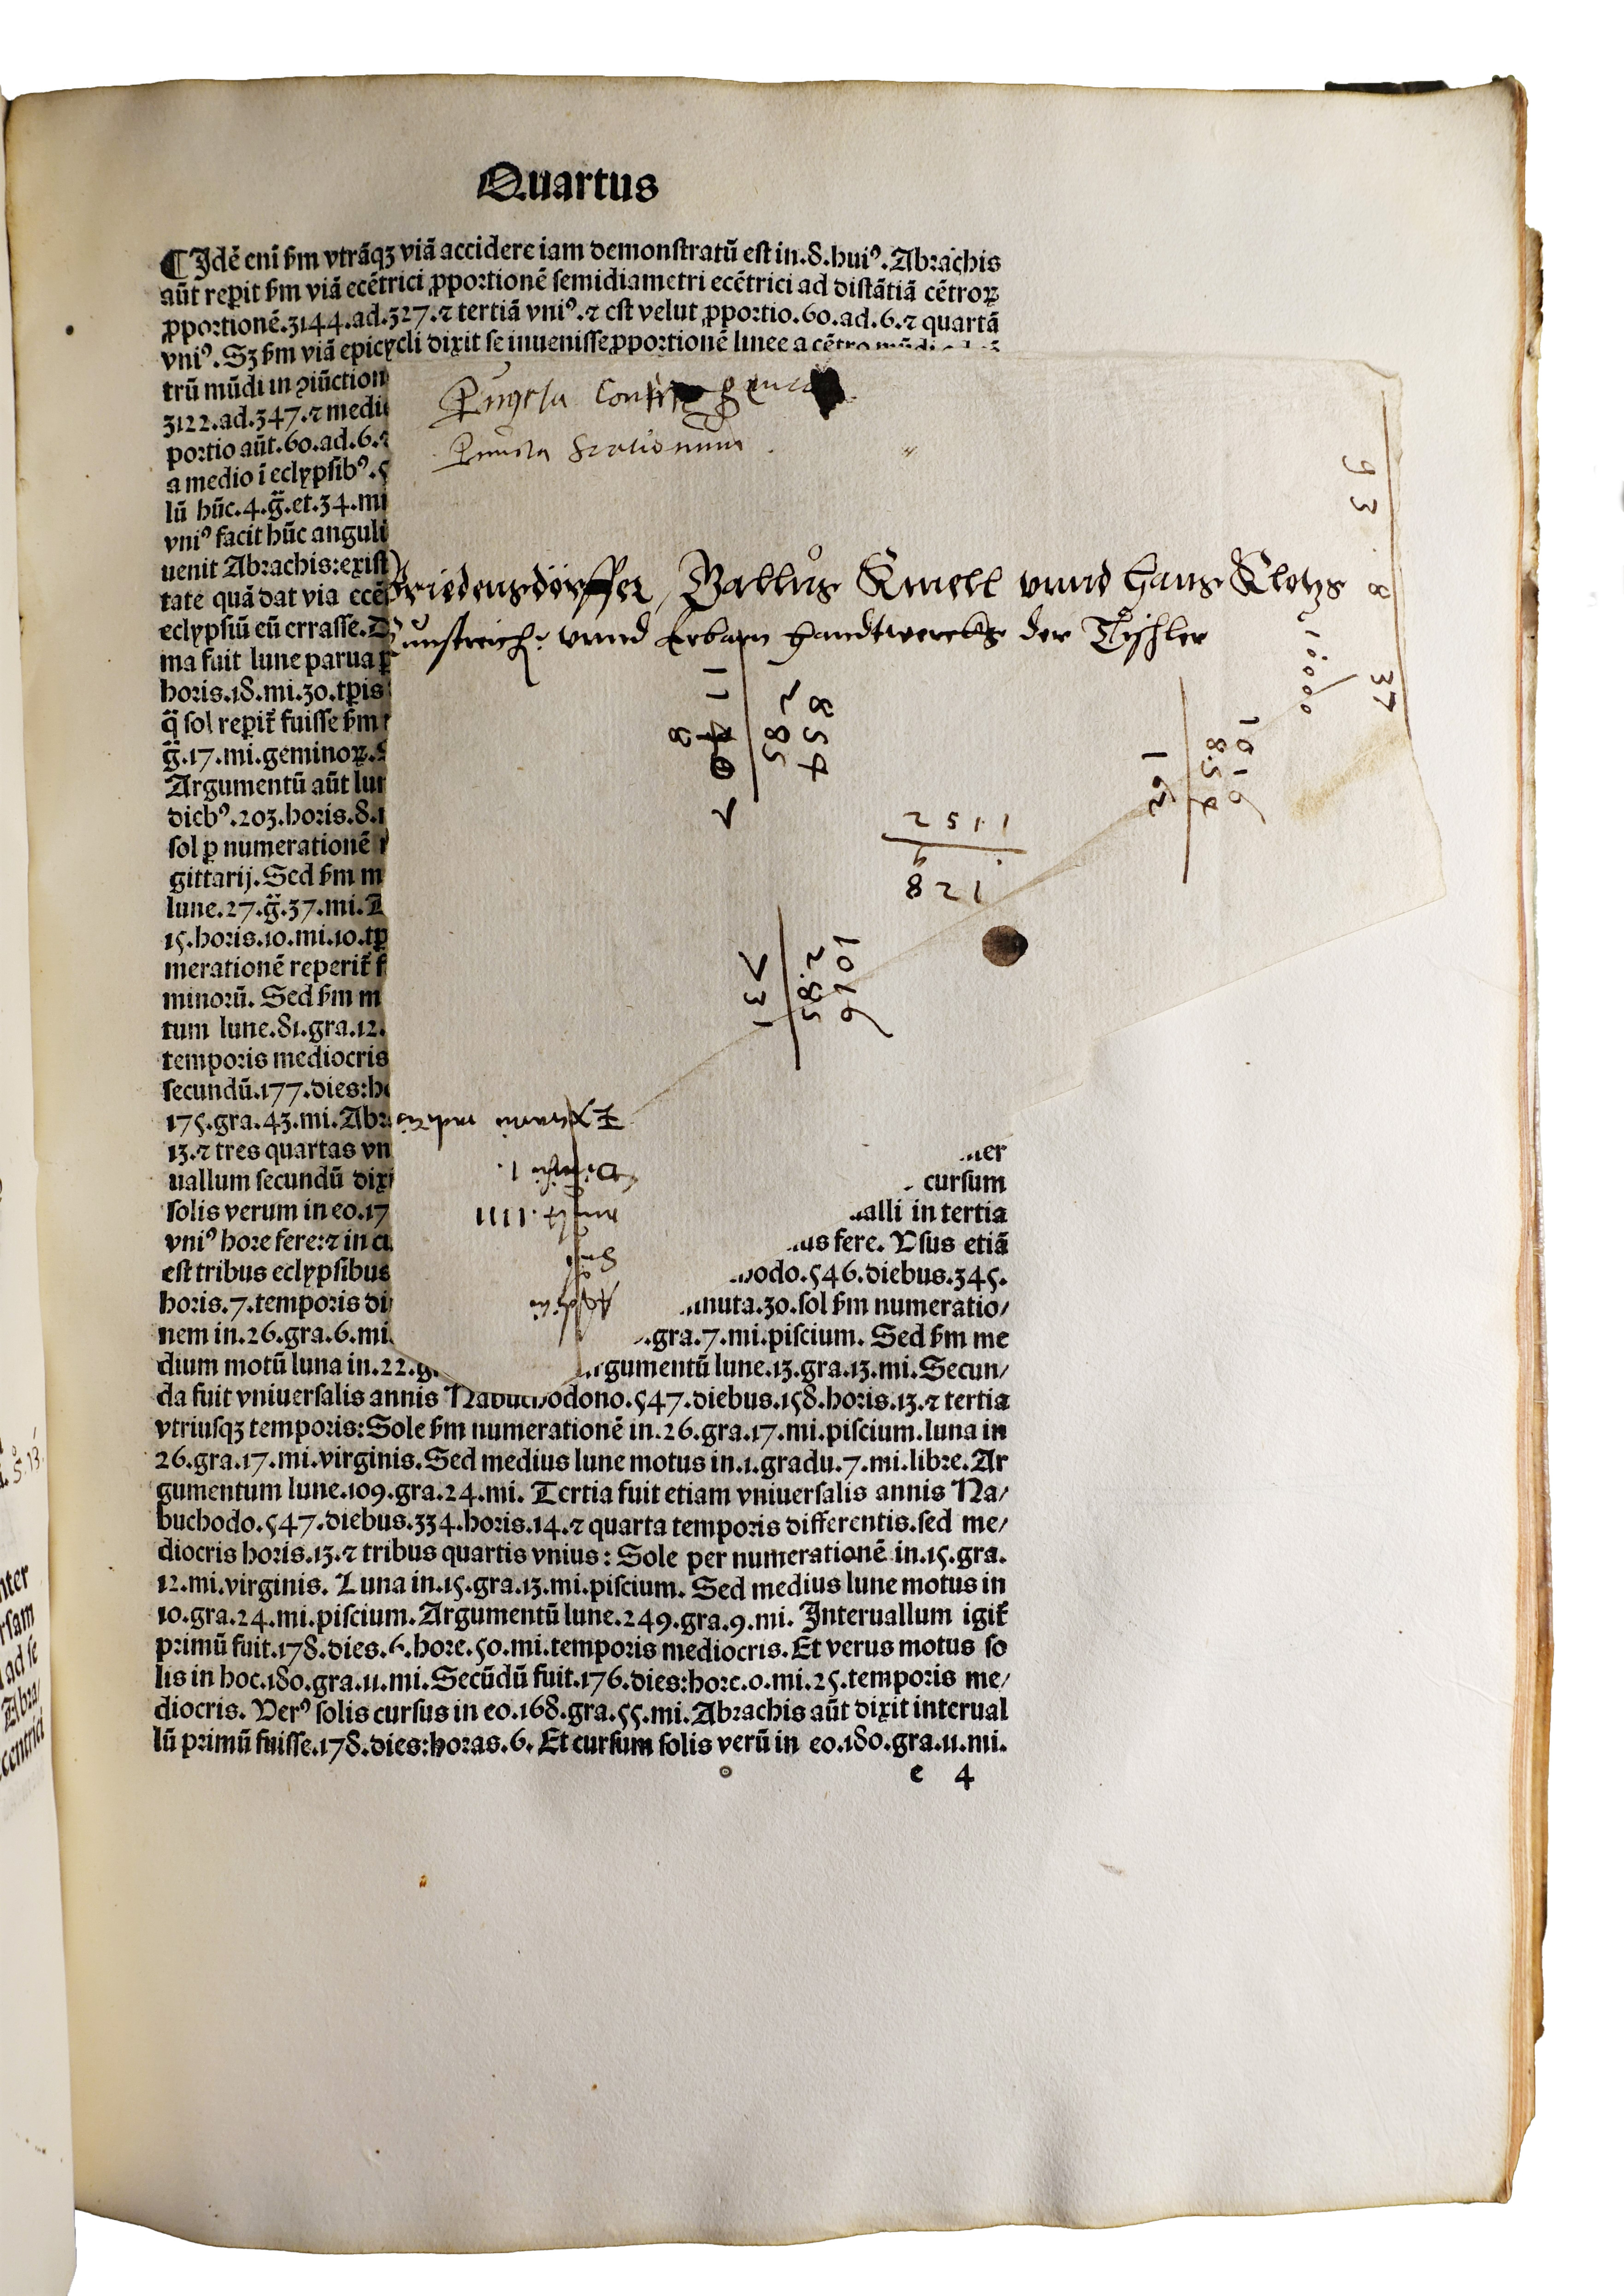 Quartus
¶ Idē eni ẜm vtrāqꝫ viā accidere iam demonstratū est in.8.huiꝰ. Abrachis
aūt reꝑit ẜm viā ecētrici ꝓportionē semidiametri ecētrici ad distātiā cētroꝝ
ꝓportionē.3144.ad.327.⁊ tertiā vniꝰ.⁊ est velut ꝓportio.60.ad.6.⁊ quartā
vniꝰ. Sꝫ ẜm viā epicycli dixit se inuenisse ꝓportionē linee a cētro
trū mūdi in ꝯiūction
3122.ad.347.⁊ medi
portio aūt.60.ad.6.⁊
a medio ī eclypsibꝰ.5
lū hūc.4.g̃.et.34.mi
vniꝰ facit hūc anguli
uenit Abrachis:exist
tate quā dat via ecē
eclypsiū eū errasse.D
ma fuit lune parua
horis.18.mi.30.tꝑis
q̃ sol reꝑit̃ fuisse ẜm
g̃.17.mi.geminoꝝ.
Argumentū aūt lun
diebꝰ.203.horis.8.
sol ꝑ numerationē
gittarij. Sed ẜm m
lune.27.g̃.37.mi.
15.horis.10.mi.10.tꝑ
merationē reperit̃ f
minorū. Sed ẜm m
tum lune.81.gra.12.
temporis mediocris
secundū.177.dies:ho
175.gra.43.mi.Abr
13.⁊ tres quartas vn
uallum secundū dixi cursum
solis verum in eo.17 alli in tertia
vniꝰ hore fere:⁊ in ci us fere. Vsus etiā
est tribus eclypsibus odo.546.diebus.345.
horis.7.temporis di nuta.30.sol ẜm numeratio/
nem in.26.gra.6.mi. .gra.7.mi.piscium. Sed ẜm me
dium motū luna in.22.g rgumentū lune.13.gra.13.mi. Secun/
da fuit vniuersalis annis Nabuchodono.547.diebus.158.horis.13.⁊ tertia
vtriusqꝫ temporis: Sole ẜm numerationē in.26.gra.17.mi.piscium.luna in
26.gra.17.mi.virginis. Sed medius lune motus in.1.gradu.7.mi.libre. Ar
gumentum lune.109.gra.24.mi. Tertia fuit etiam vniuersalis annis Na/
buchodo.547.diebus.334.horis.14.⁊ quarta temporis differentis.sed me/
diocris horis.13.⁊ tribus quartis vnius: Sole per numerationē in.15.gra.
12.mi.virginis. Luna in.15.gra.13.mi.piscium. Sed medius lune motus in
10.gra.24.mi.piscium. Argumentū lune.249.gra.9.mi. Interuallum igit̃
primū fuit.178.dies.6.hore.50.mi.temporis mediocris. Et verus motus so
lis in hoc.180.gra.11.mi. Secūdū fuit.176.dies:hore.0.mi.25.temporis me/
diocris. Verꝰ solis cursus in eo.168.gra.55.mi. Abrachis aūt dixit interual
lū primū fuisse.178.dies:horas.6. Et cursum solis verū in eo.180.gra.11.mi.
e 4
Puncta
Puncta Stationum
Friedensdörffer, Ballus Knell vnnd Hans Klotzs
Kunstreich: vnnd Erbarn Handtwercks der Tischler
93.8
37
10000
854
285
1016
854
162
1152
9
128
1016
285
731